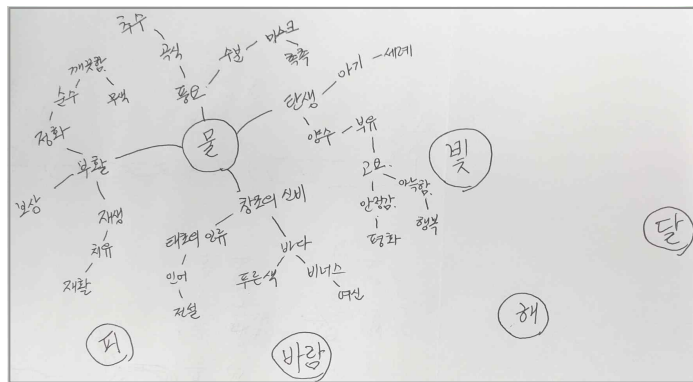 추수
곡식
풍요
수분
마스크
촉촉
깨끗함
순수
무색
정화
부활
보상
재생
치유
재활
물
탄생
아기 - 세례
양수 - 부유
고요
안정감
평화
아늑함
행복
창조의 신비
태초의 인류
인어
전설
바다
푸른색
비너스
여신
빛
달
해
피
바람